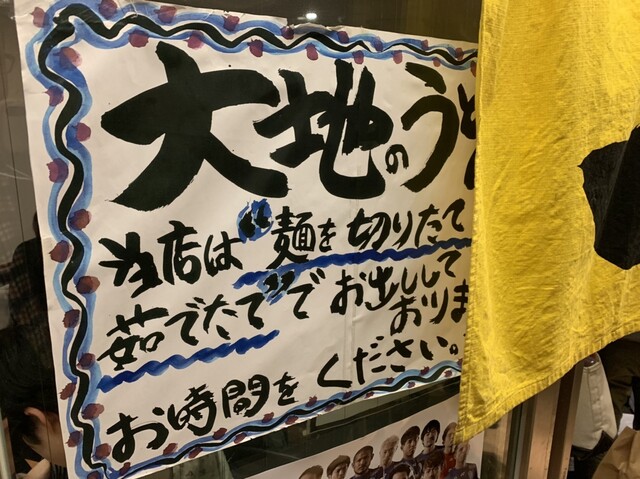 大地のうど
当店は“麺を切りたて
茹でたて”でお出しして
おりま
お時間をください。